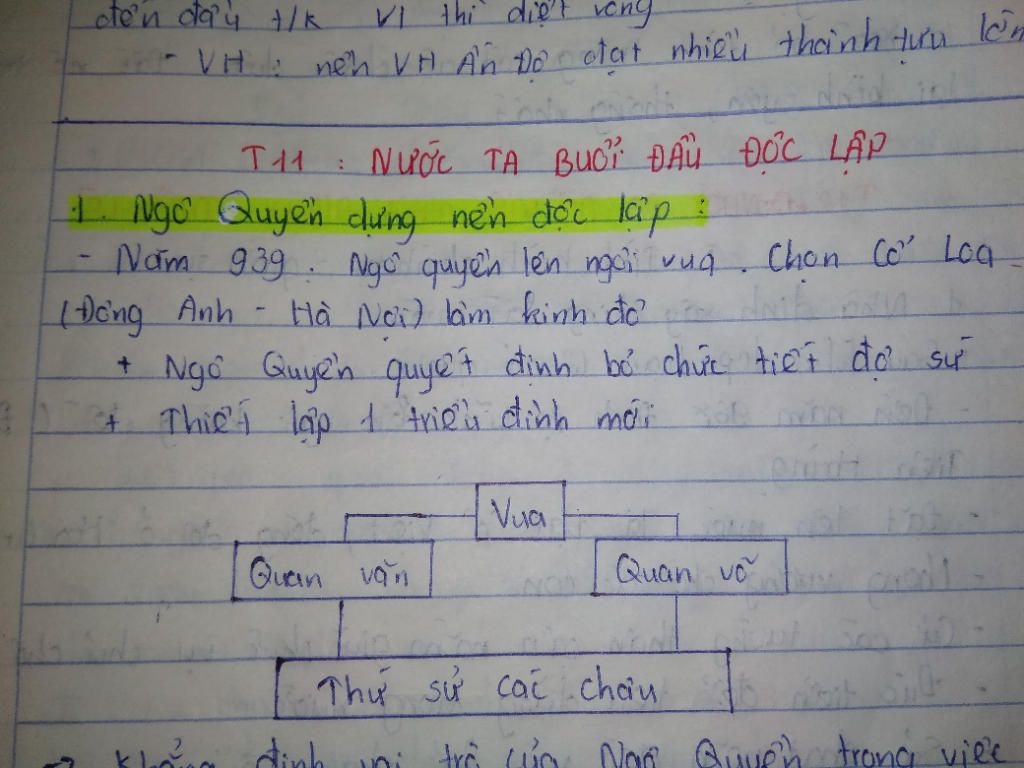 đến đầu t/k VI thì diệt vong
- VH : nền VH Ấn Độ đạt nhiều thành tựu lớn
T11 : NƯỚC TA BUỔI ĐẦU ĐỘC LẬP
1. Ngô Quyền dựng nền độc lập :
- Năm 939. Ngô quyền lên ngôi vua. Chọn Cổ Loa
(Đông Anh - Hà Nội) làm kinh đô
+ Ngô Quyền quyết định bỏ chức tiết độ sứ
+ Thiết lập 1 triều đình mới
Vua
Quan văn Quan võ
Thứ sử các châu
→ Khẳng định vai trò của Ngô Quyền trong việc